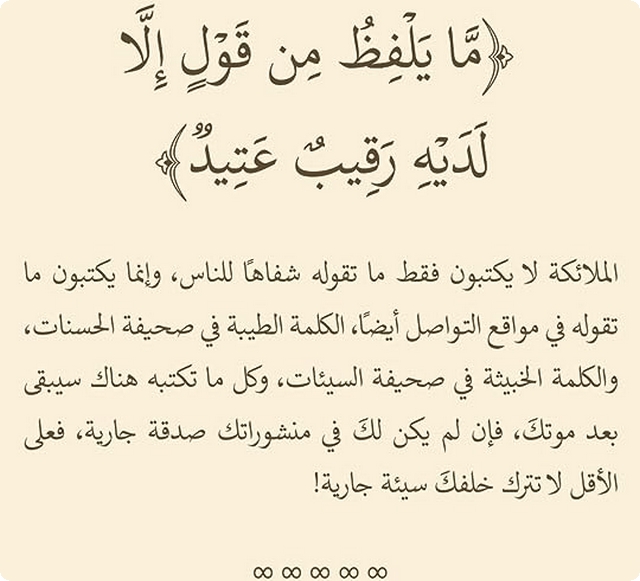 ﴿مَّا يَلْفِظُ مِن قَوْلٍ إِلَّا
لَدَيْهِ رَقِيبٌ عَتِيدٌ﴾
الملائكة لا يكتبون فقط ما تقوله شفاهًا للناس، وإنما يكتبون ما
تقوله في مواقع التواصل أيضًا، الكلمة الطيبة في صحيفة الحسنات،
والكلمة الخبيثة في صحيفة السيئات، وكل ما تكتبه هناك سيبقى
بعد موتكَ، فإن لم يكن لكَ في منشوراتك صدقة جارية، فعلى
الأقل لا تترك خلفكَ سيئة جارية!
∞ ∞ ∞ ∞ ∞